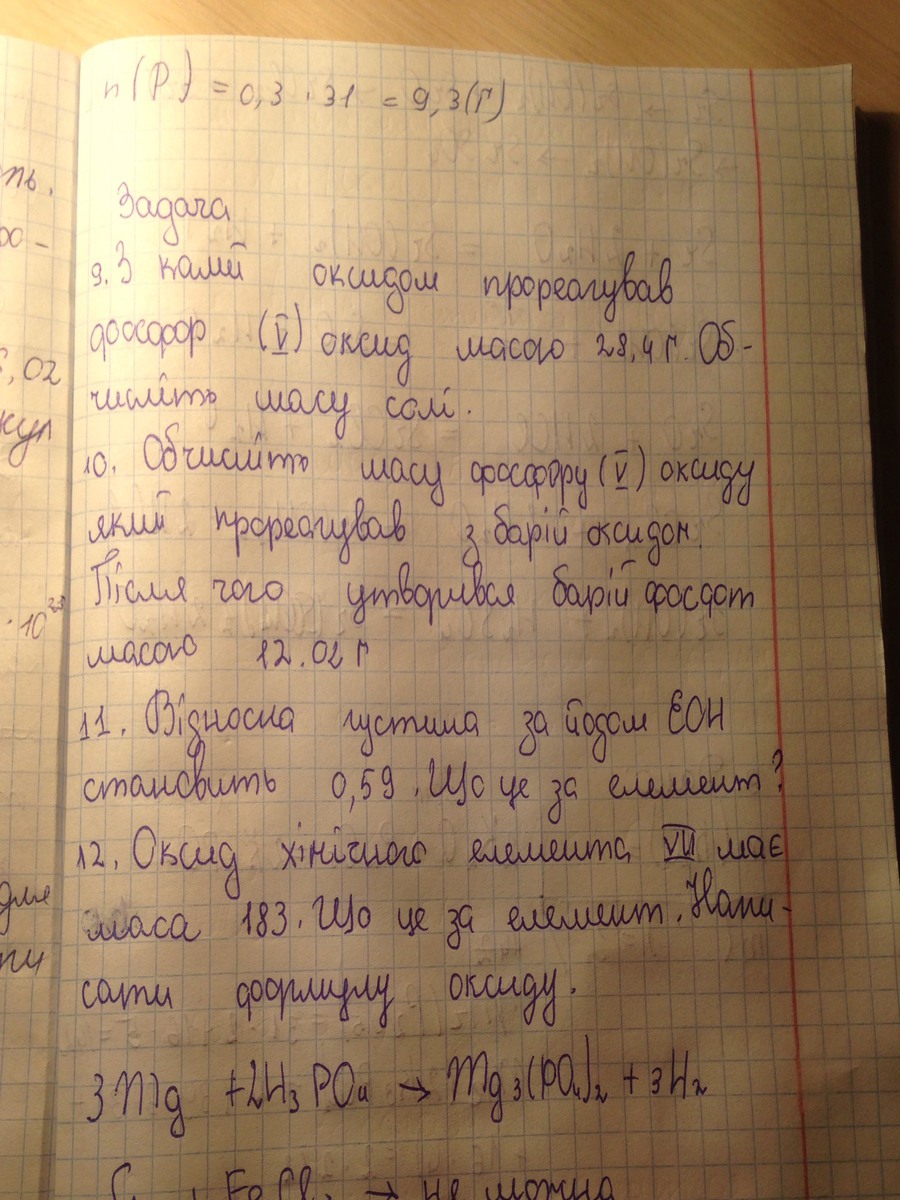 n(P) = 0,3 · 31 = 9,3(г)
Задача
9. З калій оксидом прореагував
фосфор (V) оксид масою 28,4 г. Об-
числіть масу солі.
10. Обчисліть масу фосфору (V) оксиду
який прореагував з барій оксидом.
Після чого утворився барій фосфат
масою 12.02 г
11. Відносна густина за йодом ЕОН
становить 0,59. Що це за елемент?
12. Оксид хімічного елемента VII має
маса 183. Що це за елемент. Напи-
сати формулу оксиду.
3Mg + 2H₃PO₄ → Mg₃(PO₄)₂ + 3H₂
→ не можна
ть.
,02
кул
· 10²³
для